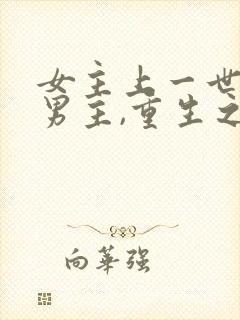 女主上一世
男主,重生之
向华强